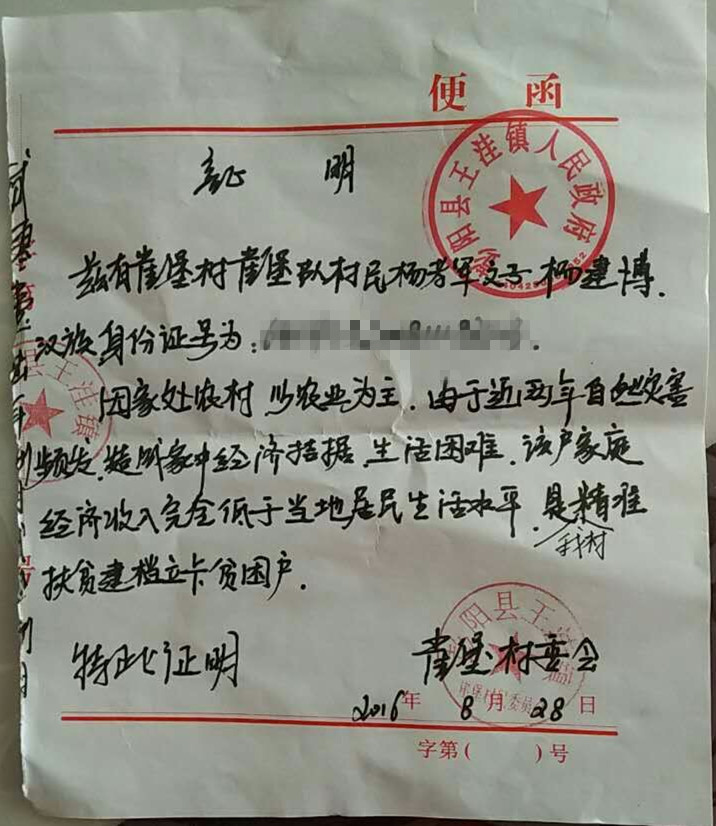 便 函
证 明
彭阳县王洼镇人民政府
兹有崖堡村崖堡队村民杨孝军之子杨建博.
汉族身份证号为:
因家处农村 以农业为主.由于近两年自然灾害
频发.造成家中经济拮据.生活困难.该户家庭
经济收入完全低于当地居民生活水平.是我村精准
扶贫建档立卡贫困户.
特此证明
崖堡村委会
2016年 8月28日
字第( )号
县王洼镇
阳县王洼镇
崖堡村委员